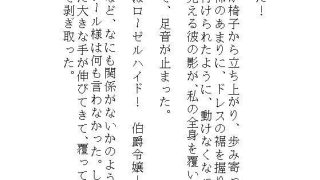 た！
が椅子から立ち上がり、歩み寄っ
怖のあまりに、ドレスの裾を握り
付けられたように、動けなくな
見える彼の影が、私の全身を覆い
て、足音が止まった。
はローゼルハイド！　伯爵令嬢
など、なにも関係がないかのよう
ール様は何も言わなかった。し
た大きな手が伸びてきて、覆って
て剥ぎ取った。